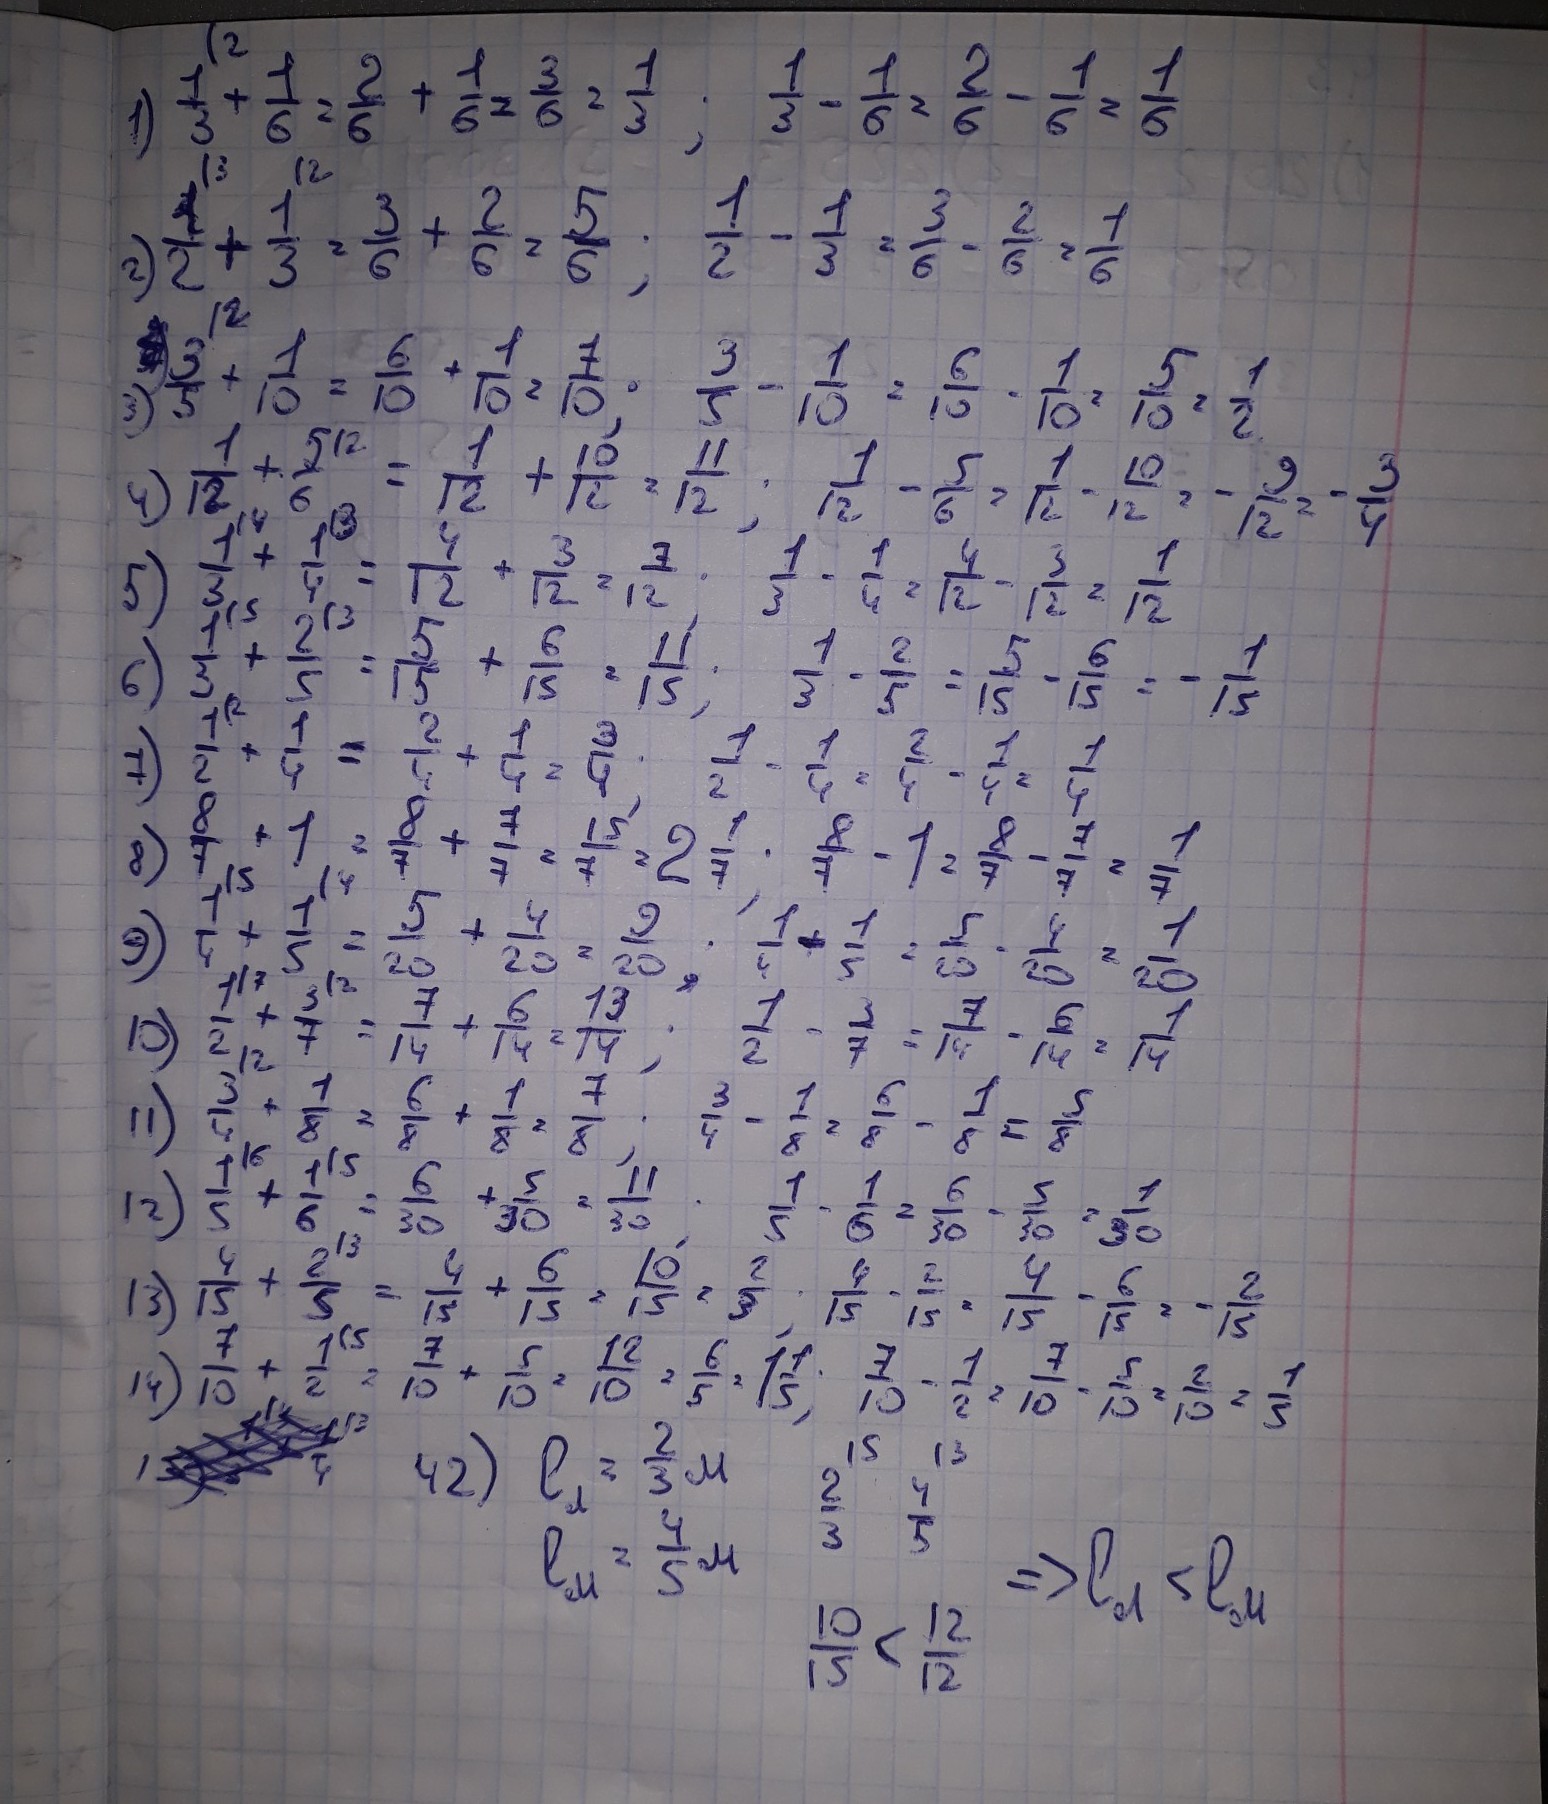 1) 1/3 (2 + 1/6 = 2/6 + 1/6 = 3/6 = 1/3 ; 1/3 - 1/6 = 2/6 - 1/6 = 1/6
2) 1/2 (3 + 1/3 (2 = 3/6 + 2/6 = 5/6 ; 1/2 - 1/3 = 3/6 - 2/6 = 1/6
3) 3/5 (2 + 1/10 = 6/10 + 1/10 = 7/10 ; 3/5 - 1/10 = 6/10 - 1/10 = 5/10 = 1/2
4) 1/12 + 5/6 (2 = 1/12 + 10/12 = 11/12 ; 1/12 - 5/6 = 1/12 - 10/12 = - 9/12 = - 3/4
5) 1/3 (4 + 1/4 (3 = 4/12 + 3/12 = 7/12 ; 1/3 - 1/4 = 4/12 - 3/12 = 1/12
6) 1/3 (5 + 2/5 (3 = 5/15 + 6/15 = 11/15 ; 1/3 - 2/5 = 5/15 - 6/15 = - 1/15
7) 1/2 (2 + 1/4 = 2/4 + 1/4 = 3/4 ; 1/2 - 1/4 = 2/4 - 1/4 = 1/4
8) 8/7 + 1 = 8/7 + 7/7 = 15/7 = 2 1/7 ; 8/7 - 1 = 8/7 - 7/7 = 1/7
9) 1/4 (5 + 1/5 (4 = 5/20 + 4/20 = 9/20 ; 1/4 - 1/5 = 5/20 - 4/20 = 1/20
10) 1/2 (7 + 3/7 (2 = 7/14 + 6/14 = 13/14 ; 1/2 - 3/7 = 7/14 - 6/14 = 1/14
11) 3/4 (2 + 1/8 = 6/8 + 1/8 = 7/8 ; 3/4 - 1/8 = 6/8 - 1/8 = 5/8
12) 1/5 (6 + 1/6 (5 = 6/30 + 5/30 = 11/30 ; 1/5 - 1/6 = 6/30 - 5/30 = 1/30
13) 4/15 + 2/5 (3 = 4/15 + 6/15 = 10/15 = 2/3 ; 4/15 - 2/15 = 4/15 - 6/15 = - 2/15
14) 7/10 + 1/2 (5 = 7/10 + 5/10 = 12/10 = 6/5 = 1 1/5 ; 7/10 - 1/2 = 7/10 - 5/10 = 2/10 = 1/5
42) lд = 2/3 м 2/3 (5 4/5 (3
lм = 4/5 м => lд < lм
10/15 < 12/12